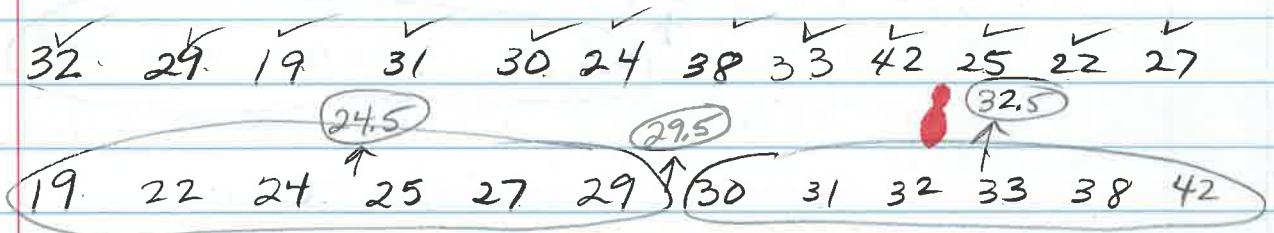 32 29 19 31 30 24 38 33 42 25 22 27
24.5 29.5 32.5
19 22 24 25 27 29 30 31 32 33 38 42